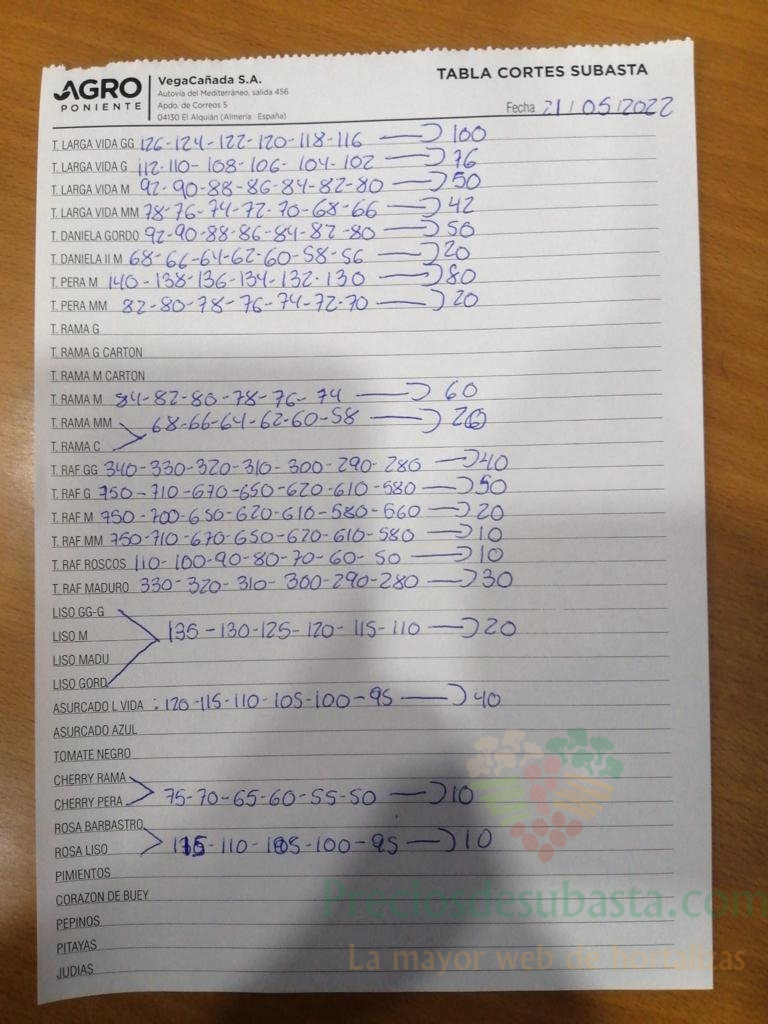 AGRO
PONIENTE
VegaCañada S.A.
Autovía del Mediterráneo, salida 456
Apdo. de Correos 5
04130 El Alquián (Almería España)
TABLA CORTES SUBASTA
Fecha 21/05/2022
T. LARGA VIDA GG 126-124-122-120-118-116 100
T. LARGA VIDA G 112-110-108-106-104-102 76
T. LARGA VIDA M 92-90-88-86-84-82-80 50
T. LARGA VIDA MM 78-76-74-72-70-68-66 42
T. DANIELA GORDO 92-90-88-86-84-82-80 50
T. DANIELA II M 68-66-64-62-60-58-56 20
T. PERA M 140-138-136-134-132-130 80
T. PERA MM 82-80-78-76-74-72-70 20
T. RAMA G
T. RAMA G CARTON
T. RAMA M CARTON
T. RAMA M 84-82-80-78-76-74 60
T. RAMA MM 68-66-64-62-60-58 20
T. RAMA C
T. RAF GG 340-330-320-310-300-290-280 40
T. RAF G 750-710-670-650-620-610-580 50
T. RAF M 750-700-650-620-610-580-560 20
T. RAF MM 750-710-670-650-620-610-580 10
T. RAF ROSCOS 110-100-90-80-70-60-50 10
T. RAF MADURO 330-320-310-300-290-280 30
LISO GG-G
LISO M 135-130-125-120-115-110 20
LISO MADU
LISO GORD
ASURCADO L VIDA : 120-115-110-105-100-95 40
ASURCADO AZUL
TOMATE NEGRO
CHERRY RAMA
CHERRY PERA 75-70-65-60-55-50 10
ROSA BARBASTRO
ROSA LISO 115-110-105-100-95 10
PIMIENTOS
CORAZON DE BUEY
PEPINOS
PITAYAS
JUDIAS
Preciosdesubasta.com
La mayor web de hortalizas